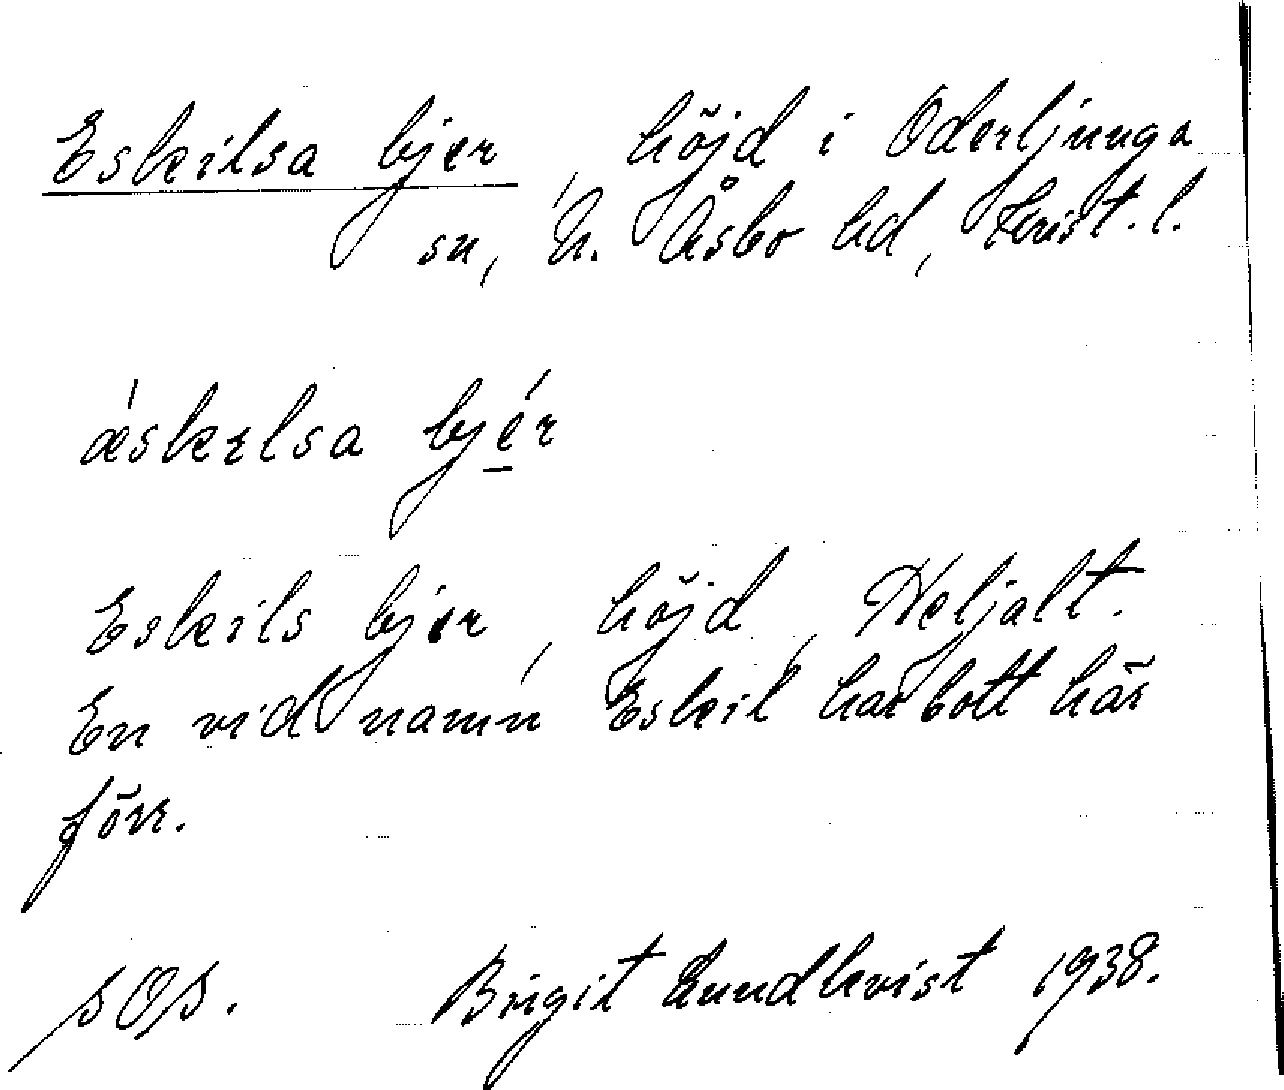 Eskilsa bjer, höjd i Oderljunga
sn, N. Åsbo hd, Krist. l.
ǽskelsa bjér
Eskils bjer, höjd, Heljalt.
En vid namn Eskil har bott här
förr.
sOs. Birgit Lundkvist 1938.